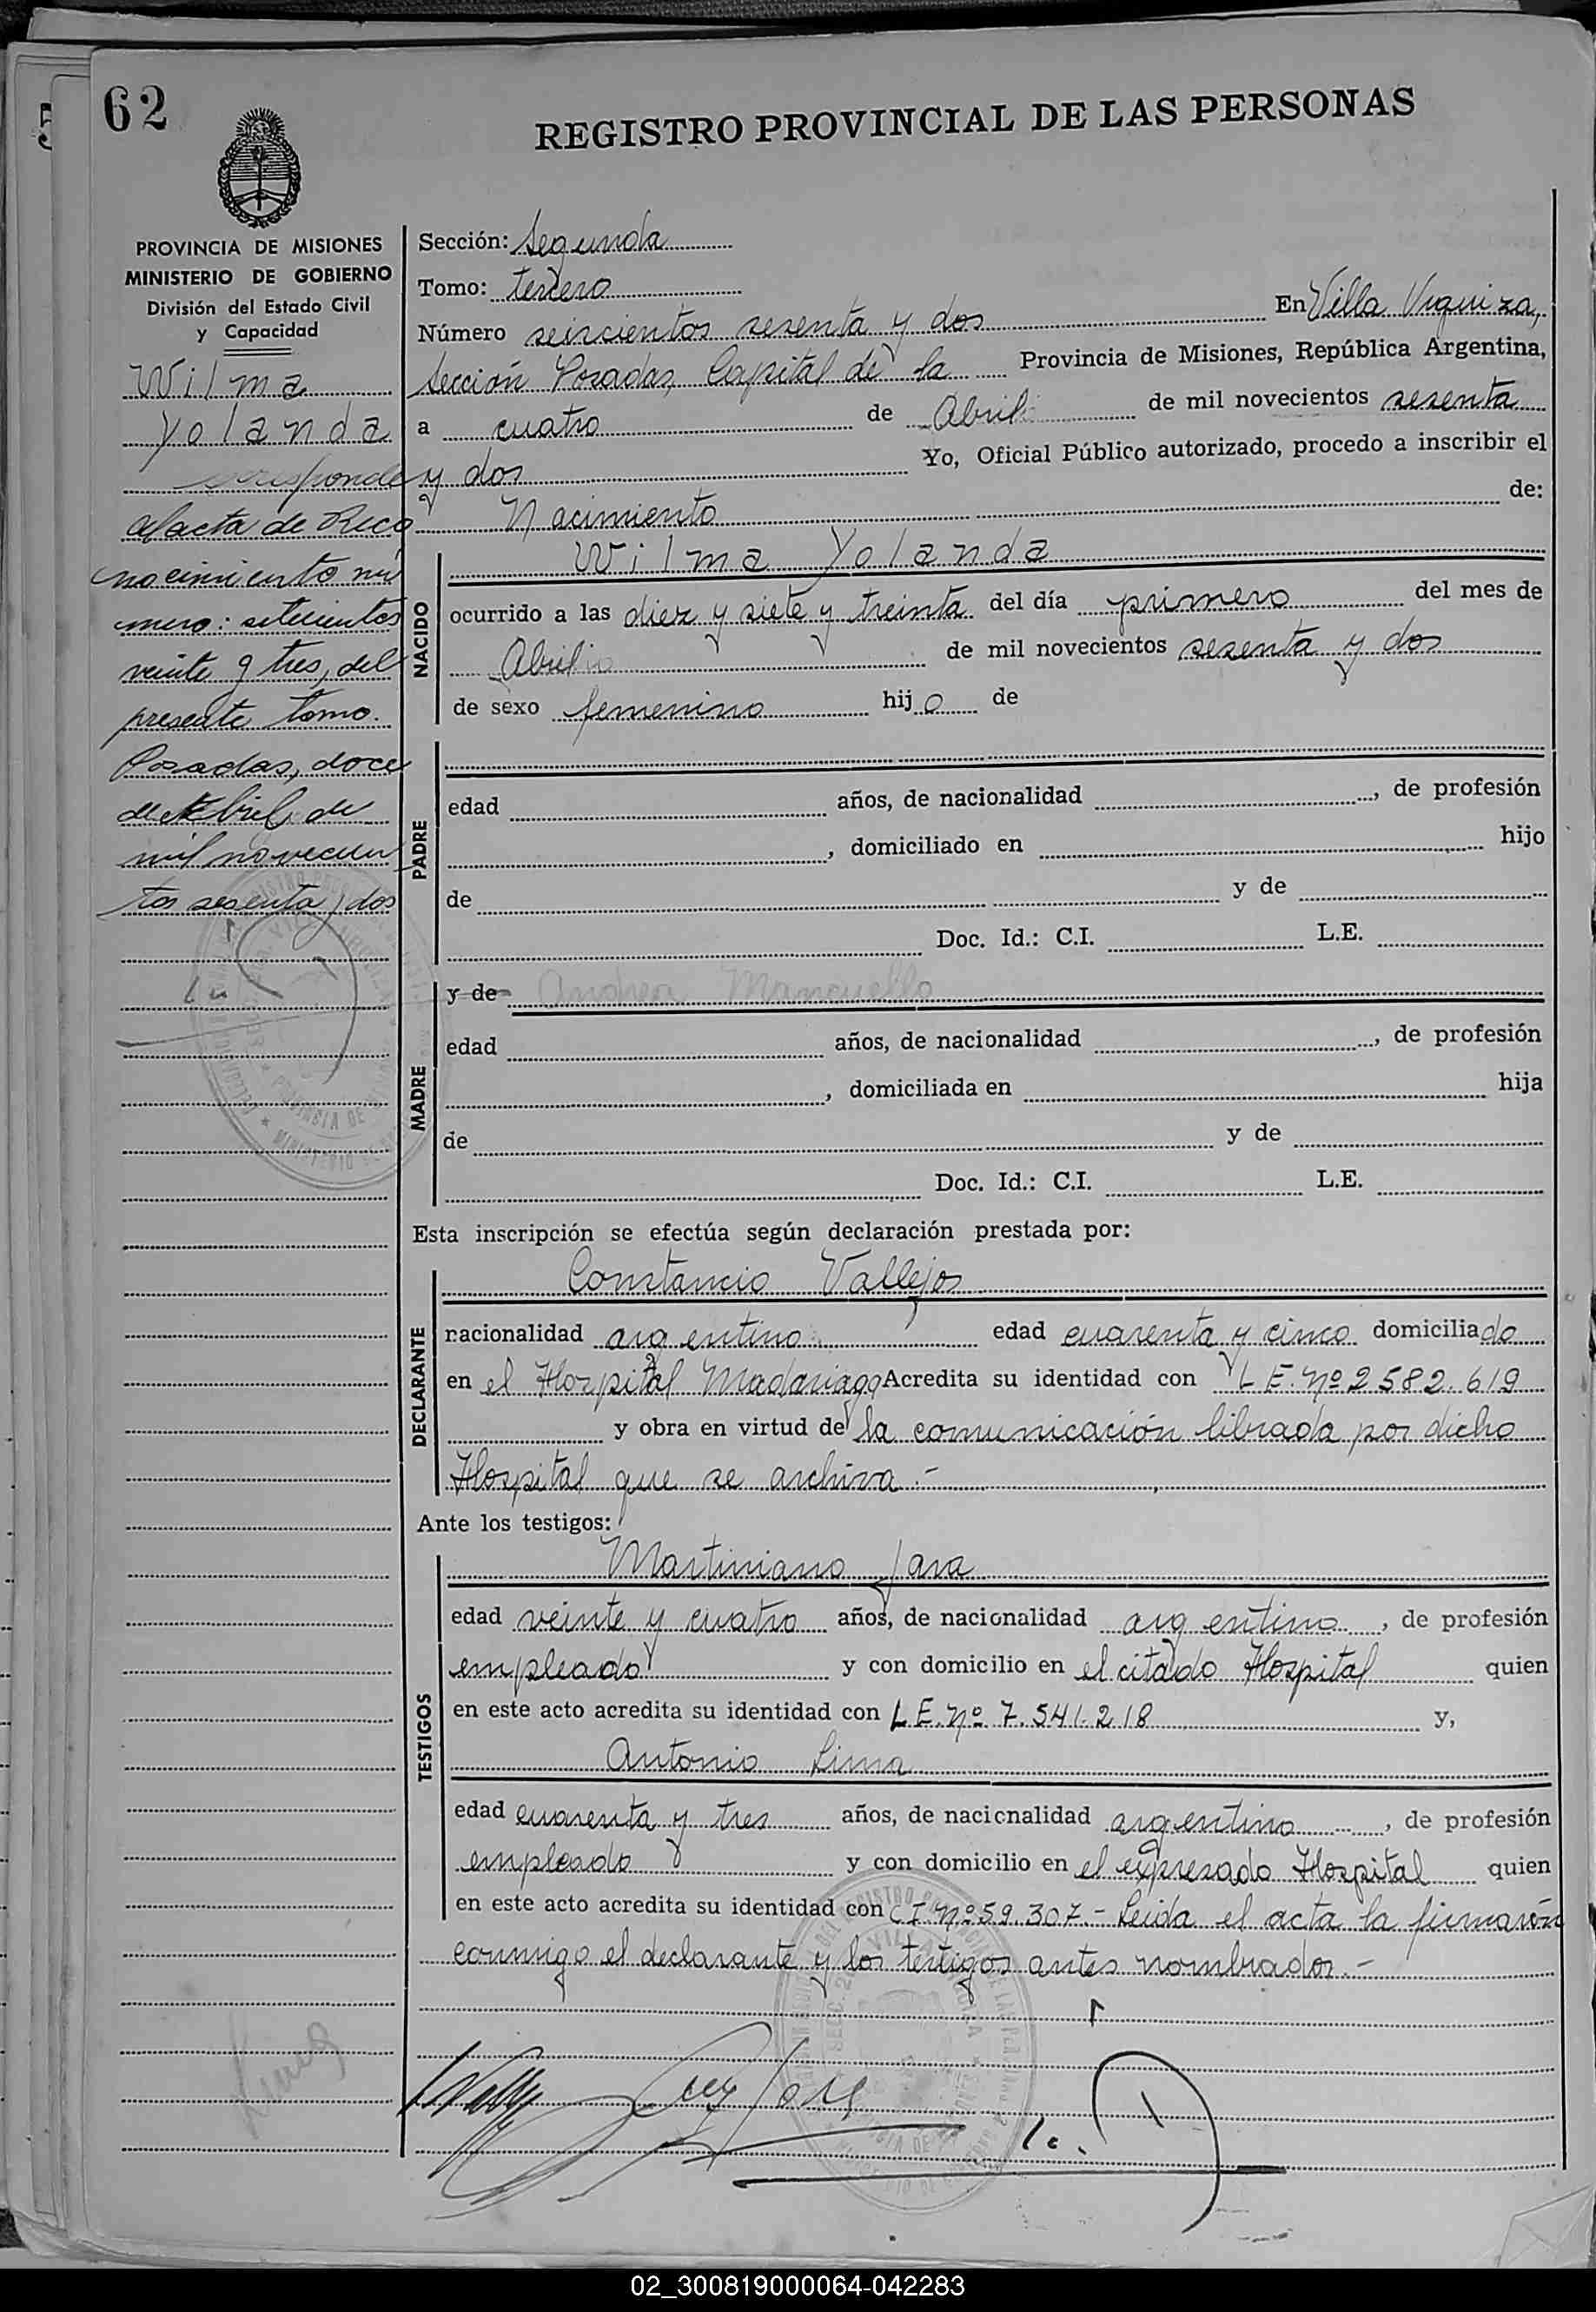 62
REGISTRO PROVINCIAL DE LAS PERSONAS
PROVINCIA DE MISIONES
MINISTERIO DE GOBIERNO
División del Estado Civil
y Capacidad
Wilma
Yolanda
corresponde
al acta de Reco
nocimiento nú
mero: setecientos
veinte y tres, del
presente tomo.
Posadas, doce
de Abril de
mil novecien
tos sesenta y dos
Sección: Segunda
Tomo: tercero
Número seiscientos sesenta y dos En Villa Urquiza,
Sección Posadas, Capital de la Provincia de Misiones, República Argentina,
a cuatro de Abril de mil novecientos sesenta
y dos Yo, Oficial Público autorizado, procedo a inscribir el
Nacimiento de:
NACIDO
Wilma Yolanda
ocurrido a las diez y siete y treinta del día primero del mes de
Abril de mil novecientos sesenta y dos
de sexo femenino hijo de
PADRE
edad años, de nacionalidad , de profesión
, domiciliado en hijo
de y de
Doc. Id.: C.I. L.E.
MADRE
y de Andrea Mancuello
edad años, de nacionalidad , de profesión
, domiciliada en hija
de y de
Doc. Id.: C.I. L.E.
Esta inscripción se efectúa según declaración prestada por:
DECLARANTE
Constancio Vallejos
nacionalidad argentino edad cuarenta y cinco domiciliado
en el Hospital Madariaga Acredita su identidad con L E. Nº 2582.619
y obra en virtud de la comunicación librada por dicho
Hospital que se archiva.-
Ante los testigos:
TESTIGOS
Martiniano Jara
edad veinte y cuatro años, de nacionalidad argentino , de profesión
empleado y con domicilio en el citado Hospital quien
en este acto acredita su identidad con L E. Nº 7.541.218 y,
Antonio Lima
edad cuarenta y tres años, de nacionalidad argentino , de profesión
empleado y con domicilio en el expresado Hospital quien
en este acto acredita su identidad con C I. Nº 59.307.- Leida el acta la firmaron
conmigo el declarante y los testigos antes nombrados.-
02_300819000064-042283